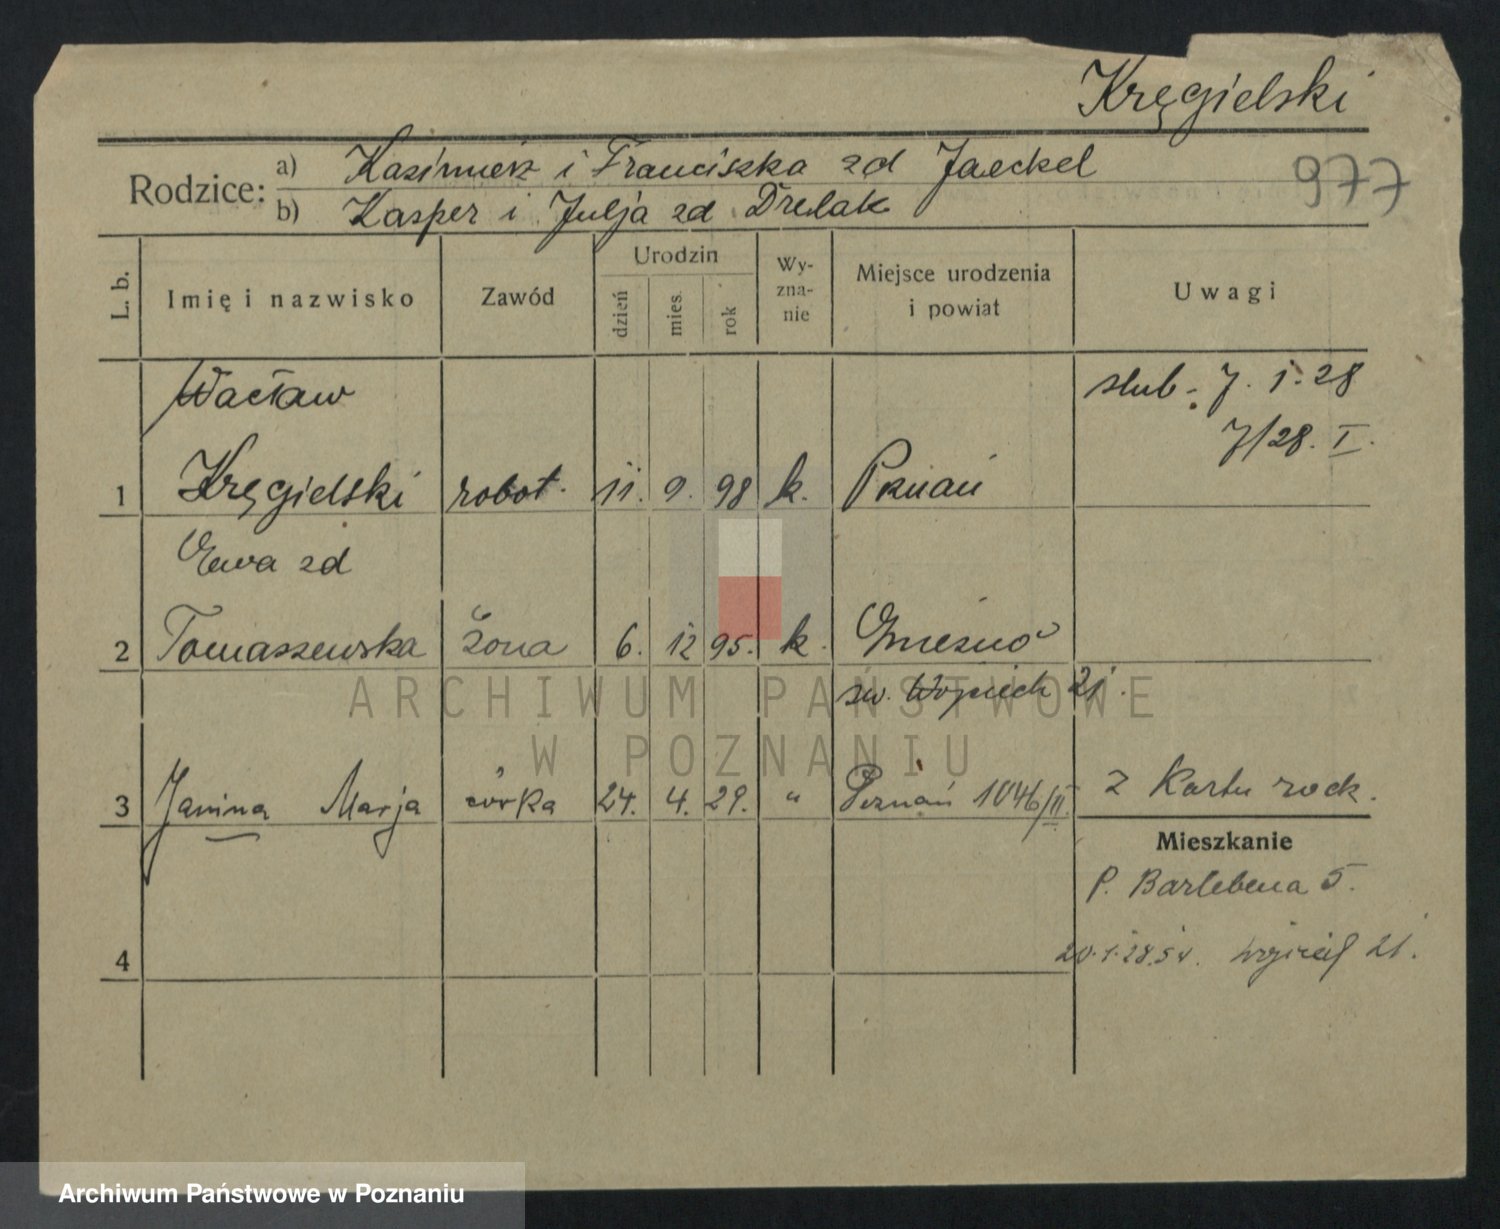 Kręgielski
Rodzice: a) Kazimierz i Franciszka zd Jaeckel
977
b) Kasper i Julja zd Drelak
L. b. Imię i nazwisko Zawód Urodzin dzień mies. rok Wy-zna-nie Miejsce urodzenia i powiat Uwagi
Wacław ślub - 7. 1. 28
7/28. I.
1 Kręgielski robot. 11. 9. 98 k. Pznań
Ewa zd
2 Tomaszewska żona 6. 12 95. k. Gniezno
św. Wojciech 21.
ARCHIWUM PAŃSTWOWE
W POZNANIU
3 Janina Marja córka 24. 4. 29. " Poznań 1046/II. z Kartu rock.
Mieszkanie
P. Bartebena 5.
4 20.1.28. św. Wojciech 21.
Archiwum Państwowe w Poznaniu